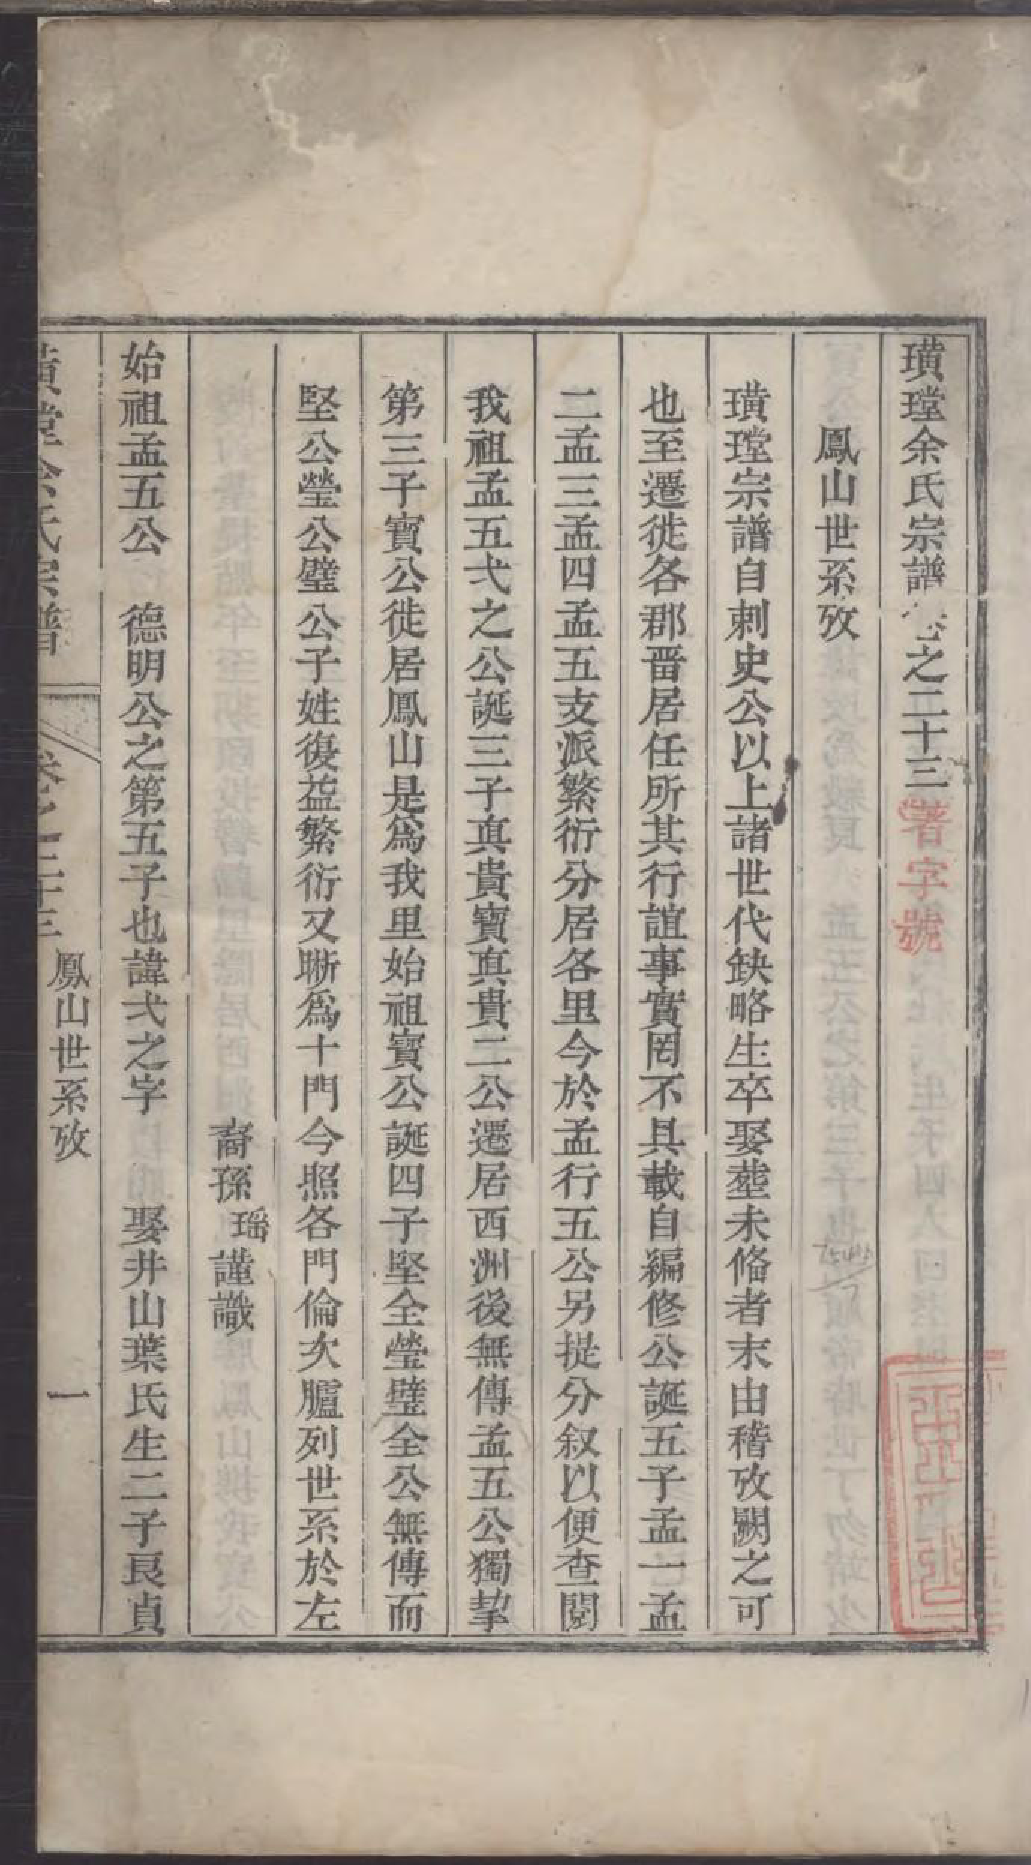 璜瑝余氏宗譜卷之二十三
著字號
鳳山世系攷
璜瑝宗譜自刺史公以上諸世代缺略生卒娶塟未偹者末由稽攷闕之可
也至遷徙各郡晋居任所其行誼事實罔不具載自編修公誕五子孟一孟
二孟三孟四孟五支派繁衍分居各里今於孟行五公另提分叙以便查閱
我祖孟五弍之公誕三子真貴寶真貴二公遷居西洲後無傳孟五公獨挈
第三子寶公徙居鳳山是爲我里始祖寶公誕四子堅全瑩璧全公無傳而
堅公瑩公璧公子姓復益繁衍又晰爲十門今照各門倫次臚列世系於左
裔孫瑶謹識
始祖孟五公 德明公之第五子也諱弍之字 娶井山葉氏生二子艮貞
璜瑝余氏宗譜
卷之二十三
鳳山世系攷
一